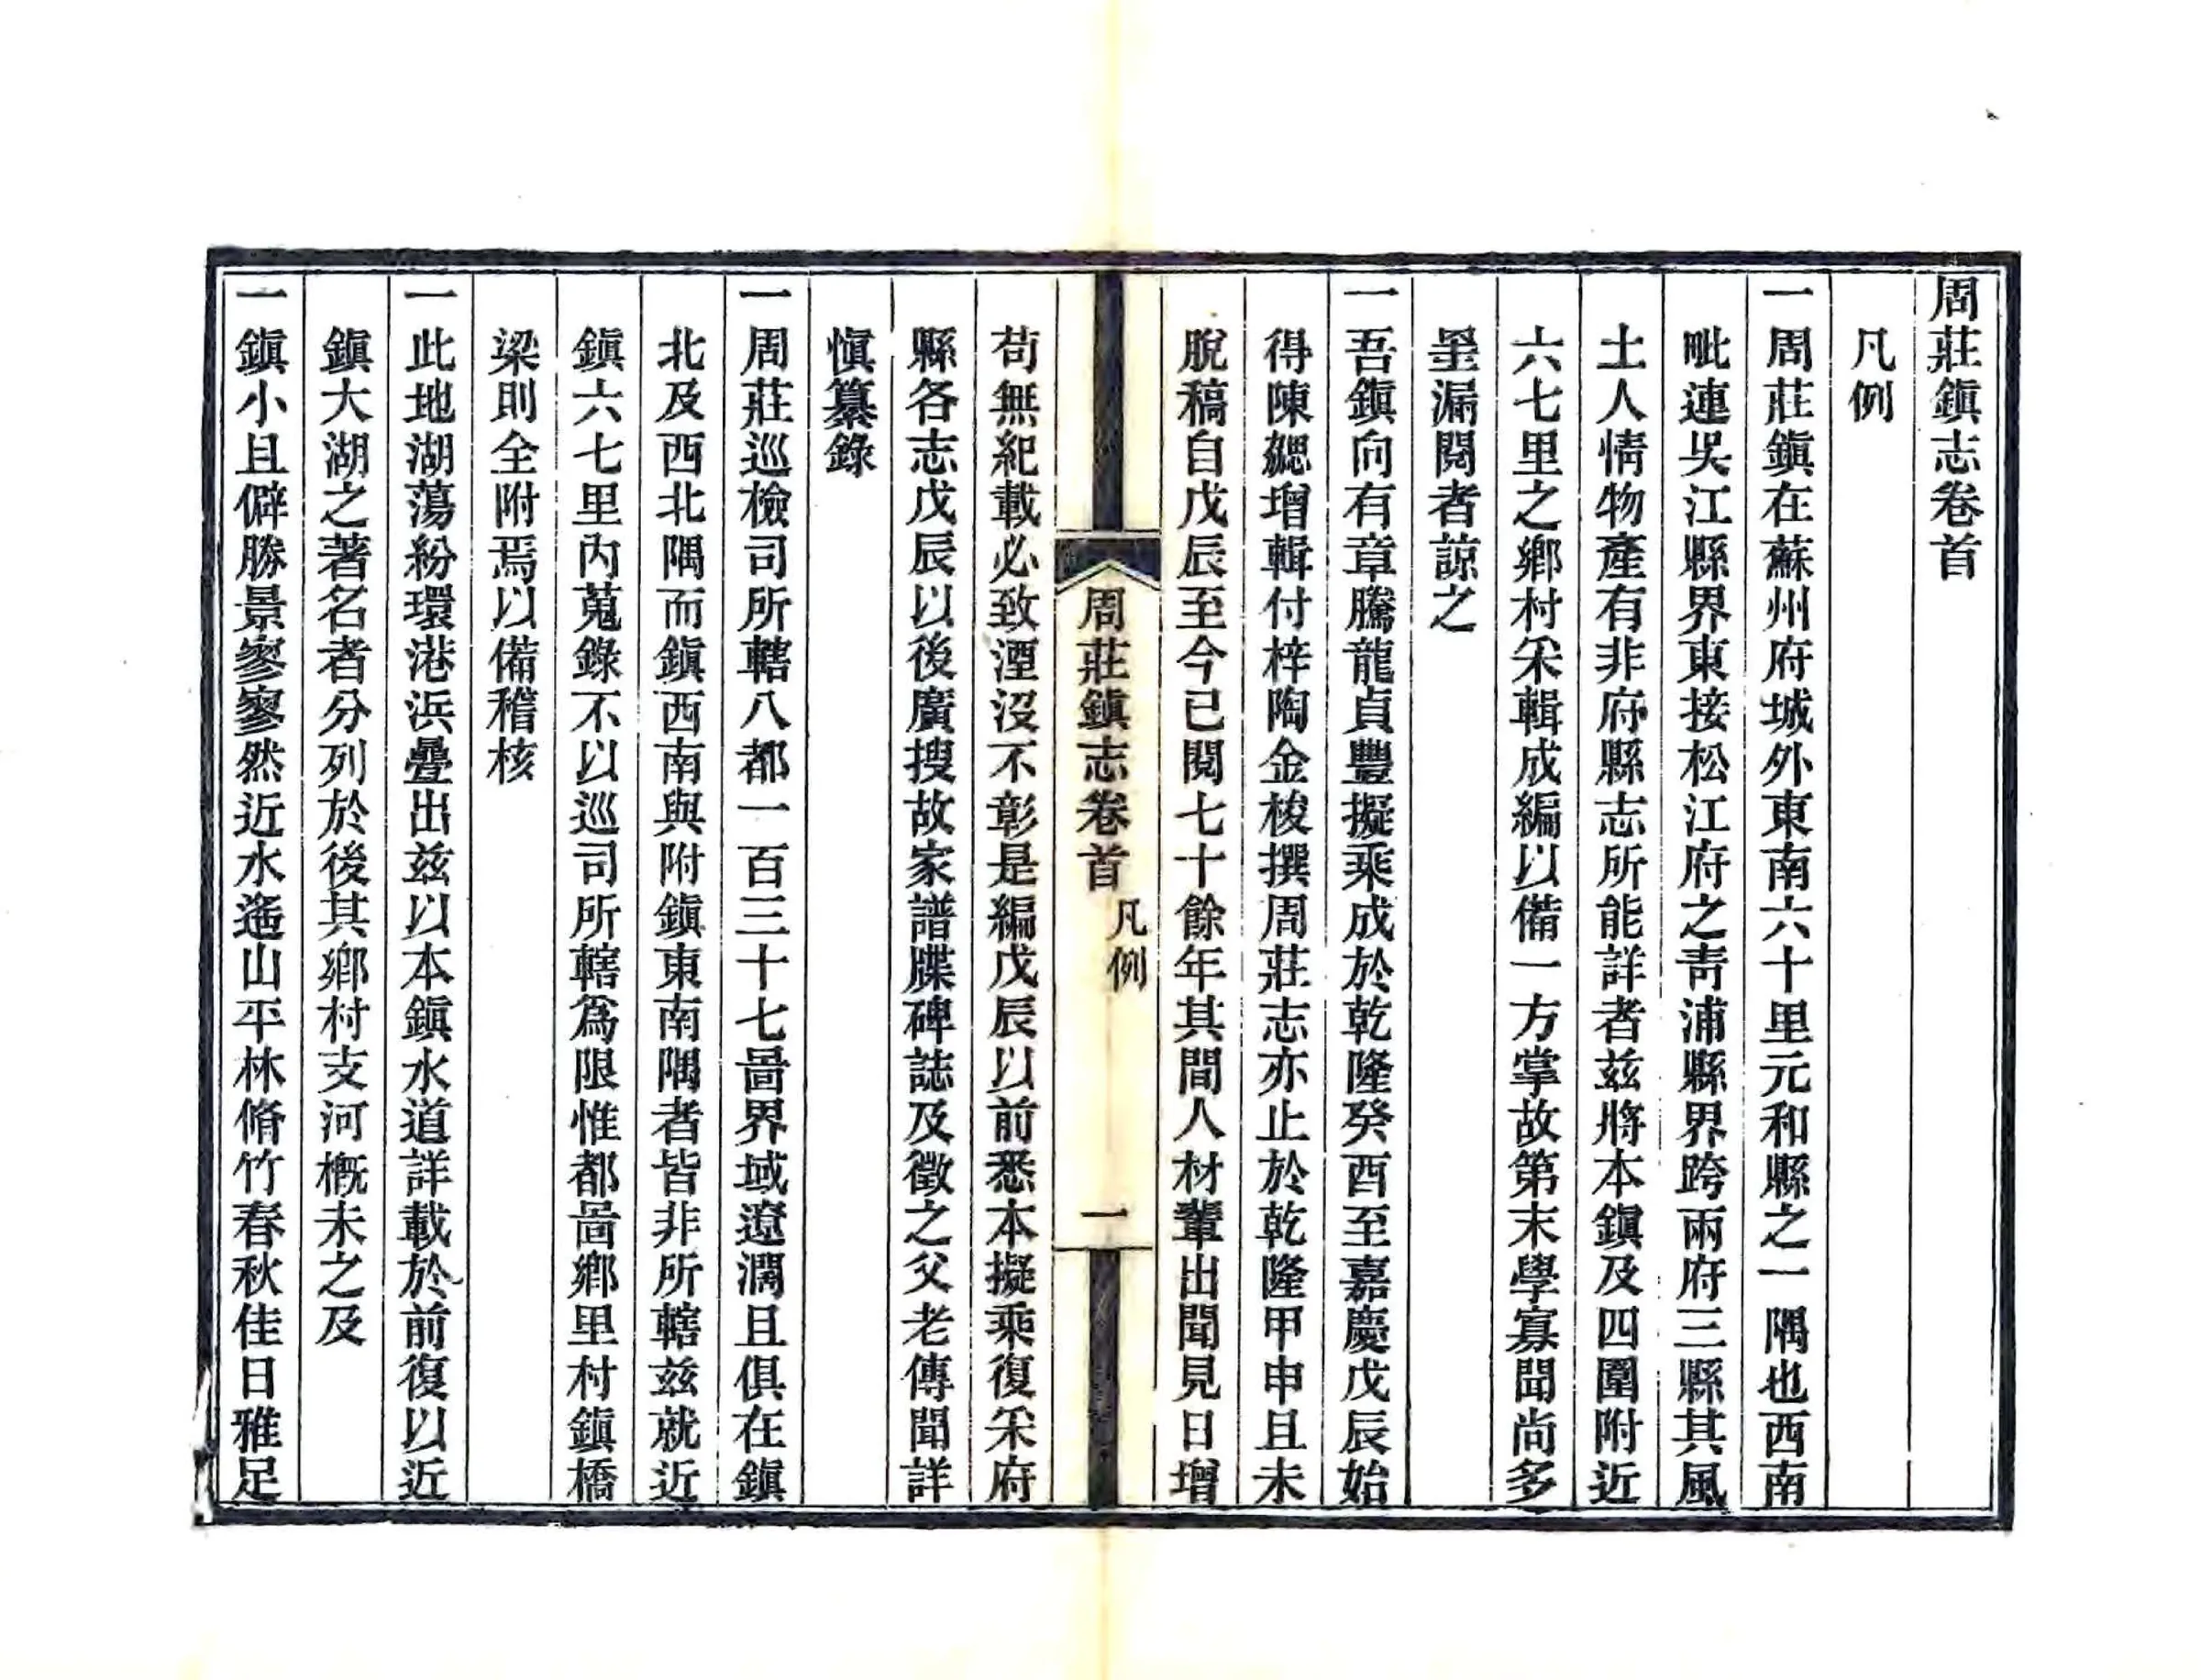 周莊鎭志卷首
凡例
一周莊鎭在蘇州府城外東南六十里元和縣之一隅也西南
毗連吳江縣界東接松江府之靑浦縣界跨兩府三縣其風
土人情物產有非府縣志所能詳者茲將本鎭及四圍附近
六七里之鄉村采輯成編以備一方掌故第末學寡聞尚多
罣漏閱者諒之
一吾鎭向有章騰龍貞豐擬乘成於乾隆癸酉至嘉慶戊辰始
得陳勰增輯付梓陶金梭撰周莊志亦止於乾隆甲申且未
脫稿自戊辰至今已閱七十餘年其間人材輩出聞見日增
周莊鎭志卷首 凡例 一
苟無紀載必致湮沒不彰是編戊辰以前悉本擬乘復采府
縣各志戊辰以後廣搜故家譜牒碑誌及徵之父老傳聞詳
愼纂錄
一周莊巡檢司所轄八都一百三十七啚界域遼濶且俱在鎭
北及西北隅而鎭西南與附鎭東南隅者皆非所轄茲就近
鎭六七里內蒐錄不以巡司所轄爲限惟都啚鄉里村鎭橋
梁則全附焉以備稽核
一此地湖蕩紛環港浜疊出茲以本鎭水道詳載於前復以近
鎭大湖之著名者分列於後其鄉村支河槪未之及
一鎭小且僻勝景寥寥然近水迤山平林脩竹春秋佳日雅足